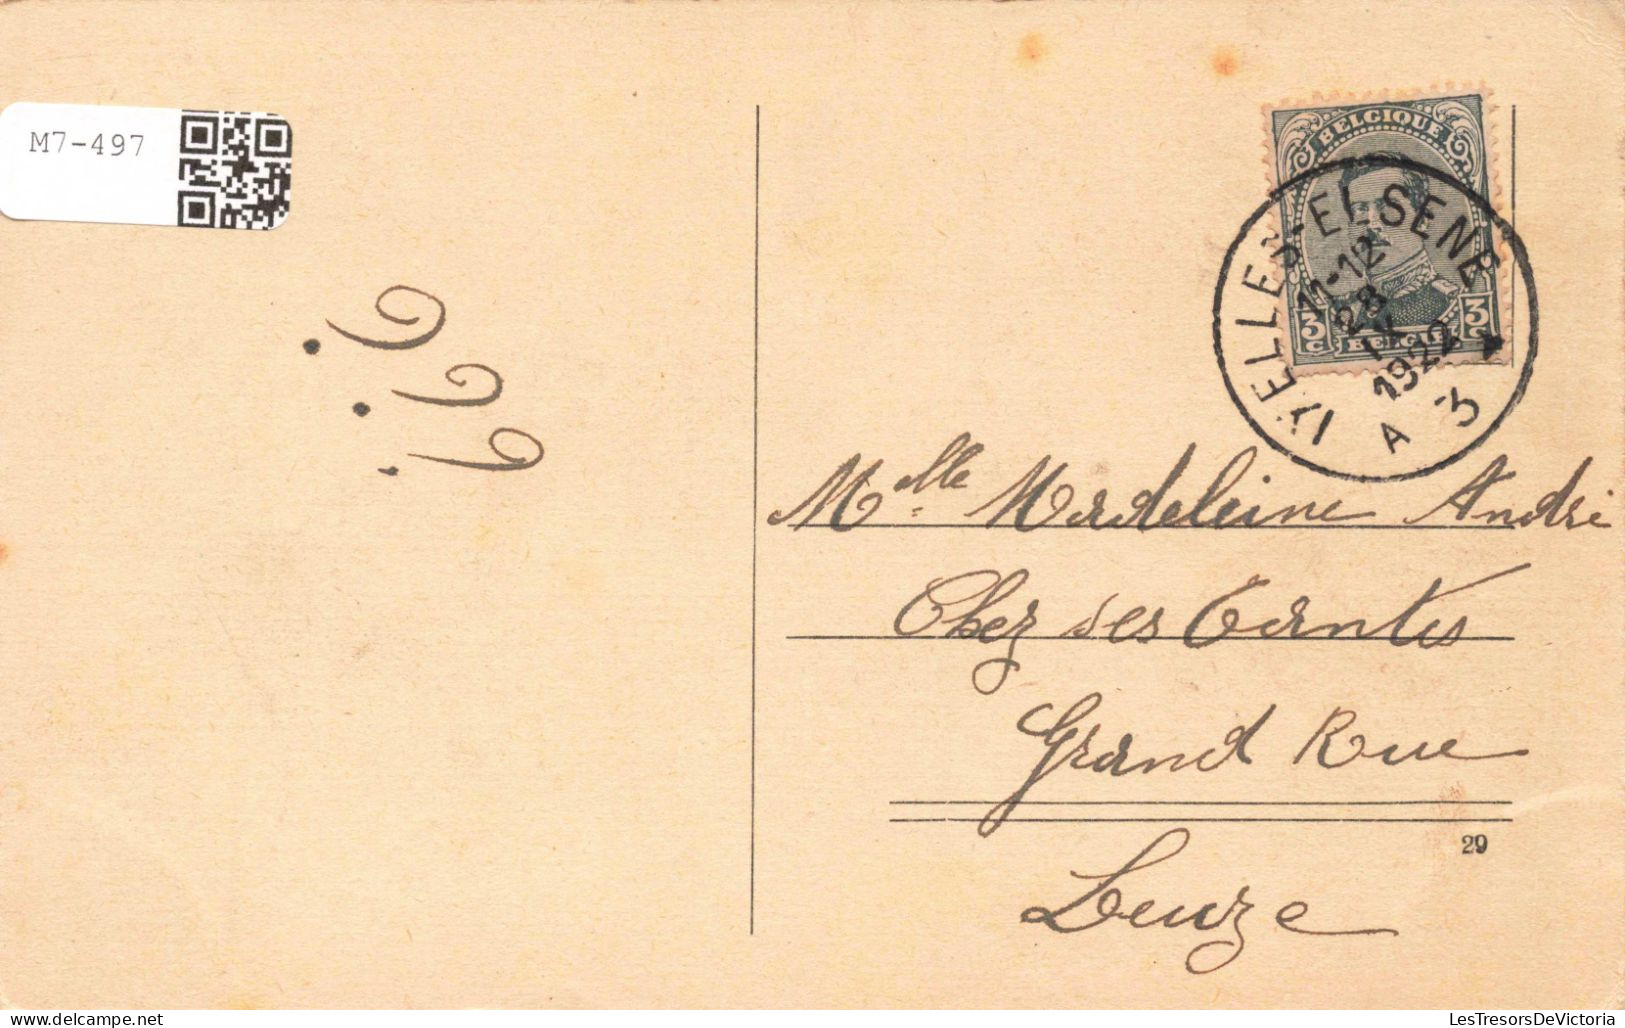 M7-497
BELGIQUE
3c BELGIË 3c
IXELLES-ELSENE
11-12
28
IX
1922
A 3
Melle Madeleine André
Chez ses Tantes
Grand Rue
29
Leuze
LesTresorsDeVictoria